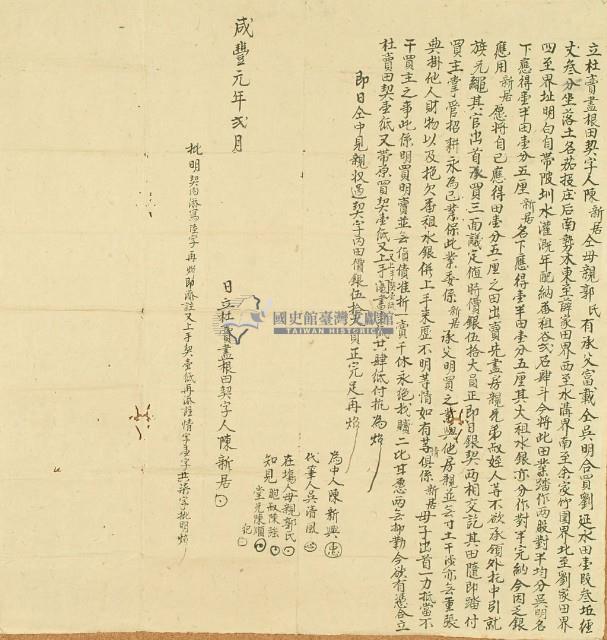 立杜賣盡根田契字人陳新居仝母親郭氏有承父富戴仝吳明合買劉延水田壹段叁坵經
丈叁分坐落土名茄投庄后南勢東至薛家田界西至水溝界南至余家竹圍界北至劉家田界
四至界址明白自帶陂圳水灌溉年配納番租谷弍石肆斗今將此田業踏作兩股對半均分吳明名
下應得壹半田壹分五厘新居名下應得壹半田壹分五厘其大租水銀亦分作對半完納今因乏銀
應用新居愿將自己應得田壹分五厘之田出賣先盡房親兄弟叔姪人等不欲承領外托中引就
族兄繩其官出首承買三面議定值時價銀伍拾大員正即日銀契兩相交訖其田隨即踏付
買主掌管招耕永為己業保此業委係新居承父明買之業與他房親並無寸土干涉亦無重張
典掛他人財物以及拖欠番租水銀併上手來歷不明等情如有等俱係新居母子出首一力抵當不
干買主之事此係明買明賣並無債準折一賣千休永絕找贖二比甘愿兩無抑勒今欲有憑合立
杜賣田契壹紙又帶原買契壹紙又上手肆紙付執為炤
即日仝中見親收過契字內田價銀伍拾員正完足再炤
為中人陳新興
代筆人吳清風
在場人母親郭氏
知見 胞叔陳強
堂兄陳順
日立杜賣盡根田契字人陳新居
咸豐元年弍月
批明契內添寫陸字再炤即添註又上手契壹紙再添註情字壹字共柒字批明炤
國史館臺灣文獻館
TAIWAN HISTORICA